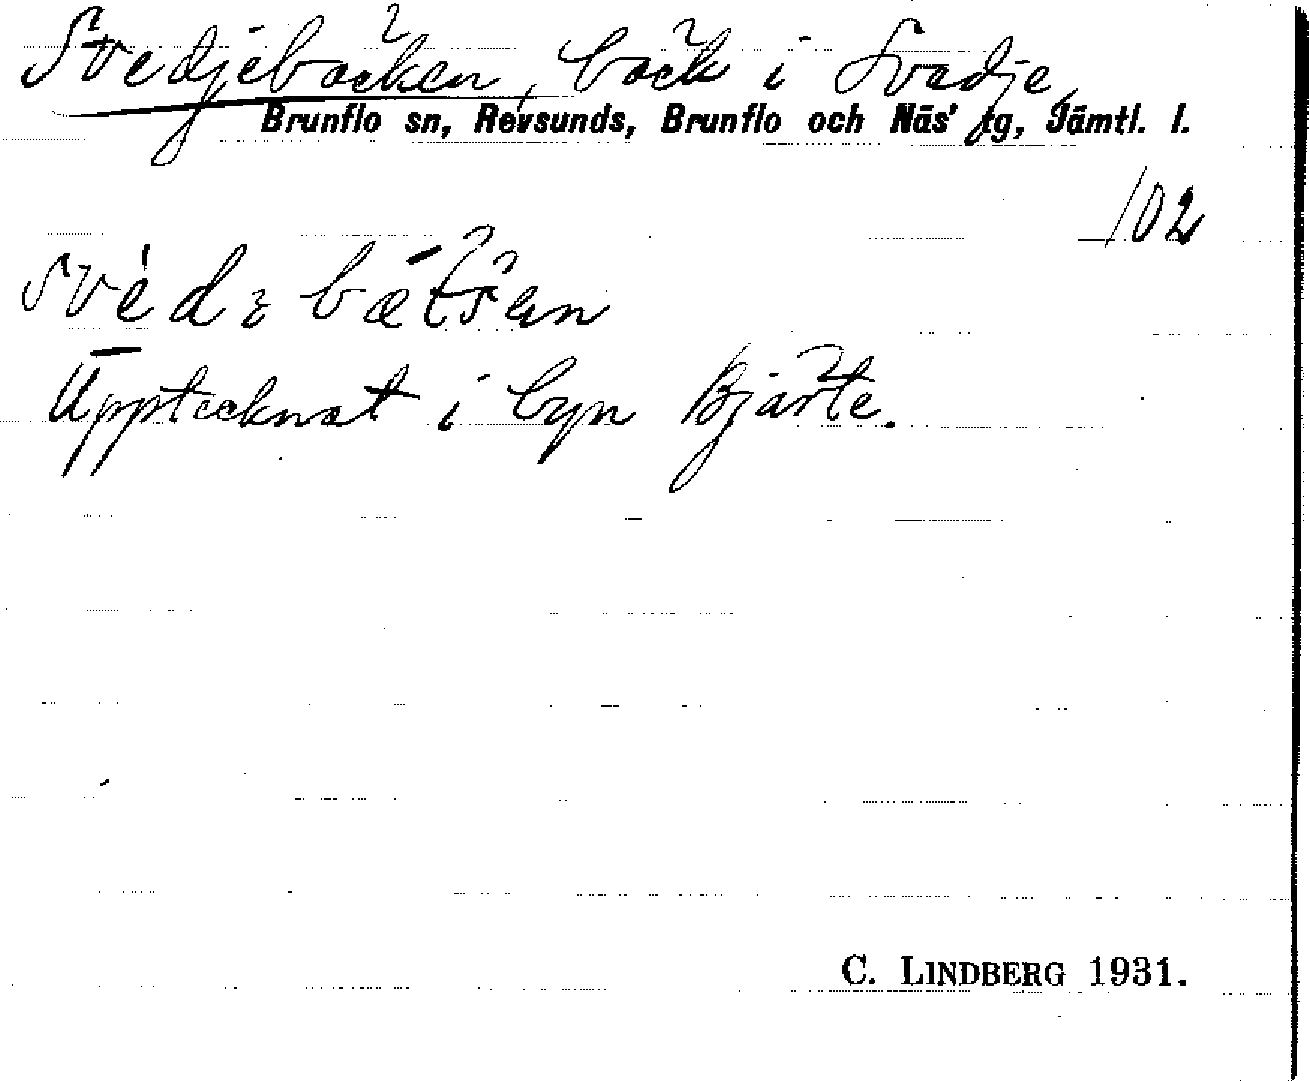 Svedjebäcken, bäck i Svedje,
Brunflo sn, Revsunds, Brunflo och Näs' tg, Jämtl. l.
102
Upptecknat i byn Bjärte.
C. LINDBERG 1931.